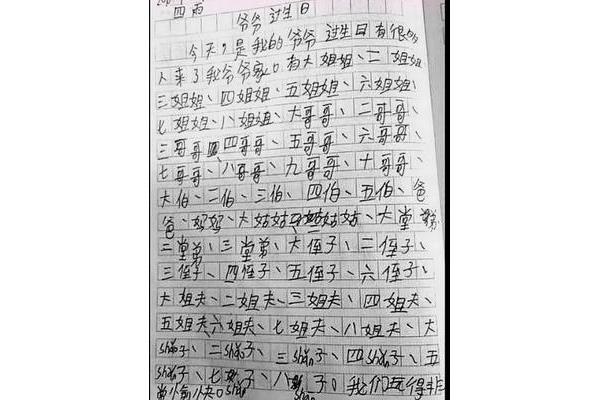 四 雨
爷爷过生日
今天,是我的爷爷过生日有很多
人来了我爷爷家。有大姐姐、二姐姐
三姐姐、四姐姐、五姐姐、六姐姐、
七姐姐、八姐姐、大哥哥、二哥哥、
三哥哥、四哥哥、五哥哥、六哥哥、
七哥哥、八哥哥、九哥哥、十哥哥、
大伯、二伯、三伯、四伯、五伯、爸
爸、妈妈、大姑姑、二姑姑、大堂弟
二堂弟、三堂弟、大侄子、二侄子、
三侄子、四侄子、五侄子、六侄子、
大姐夫、二姐夫、三姐夫、四姐夫、
五姐夫、六姐夫、七姐夫、八姐夫、大
shǎo子、二shǎo子、三shǎo子、四shǎo子、五
shǎo子、七shǎo子、八shǎo子。我们玩得非
常愉快。